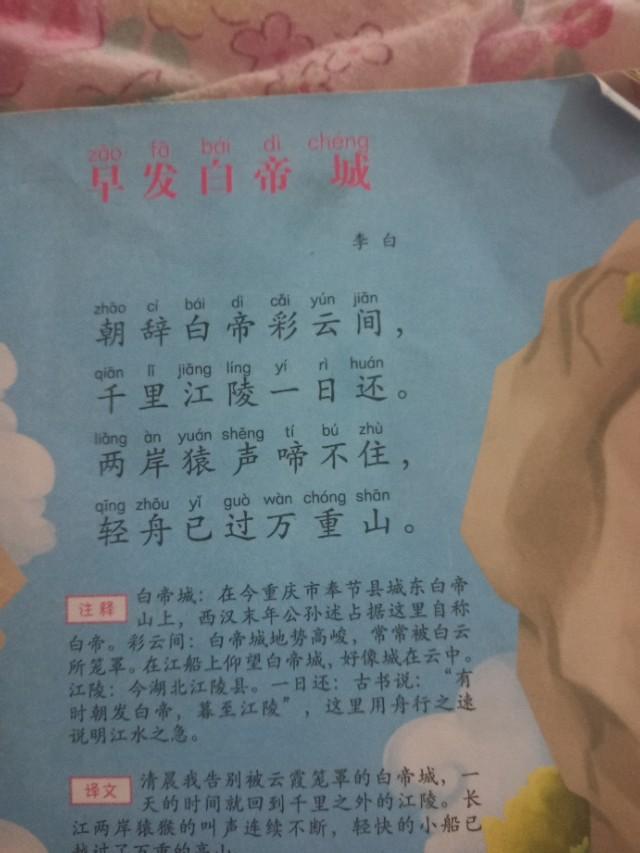 zǎo fā bái dì chéng
早发白帝城
李白
zhāo cí bái dì cǎi yún jiān
朝辞白帝彩云间，
qiān lǐ jiāng líng yí rì huán
千里江陵一日还。
liǎng àn yuán shēng tí bú zhù
两岸猿声啼不住，
qīng zhōu yǐ guò wàn chóng shān
轻舟已过万重山。
注释 白帝城：在今重庆市奉节县城东白帝
山上，西汉末年公孙述占据这里自称
白帝。彩云间：白帝城地势高峻，常常被白云
所笼罩。在江船上仰望白帝城，好像城在云中。
江陵：今湖北江陵县。一日还：古书说：“有
时朝发白帝，暮至江陵”，这里用舟行之速
说明江水之急。
译文 清晨我告别被云霞笼罩的白帝城，一
天的时间就回到千里之外的江陵。长
江两岸猿猴的叫声连续不断，轻快的小船已
越过了万重的高山